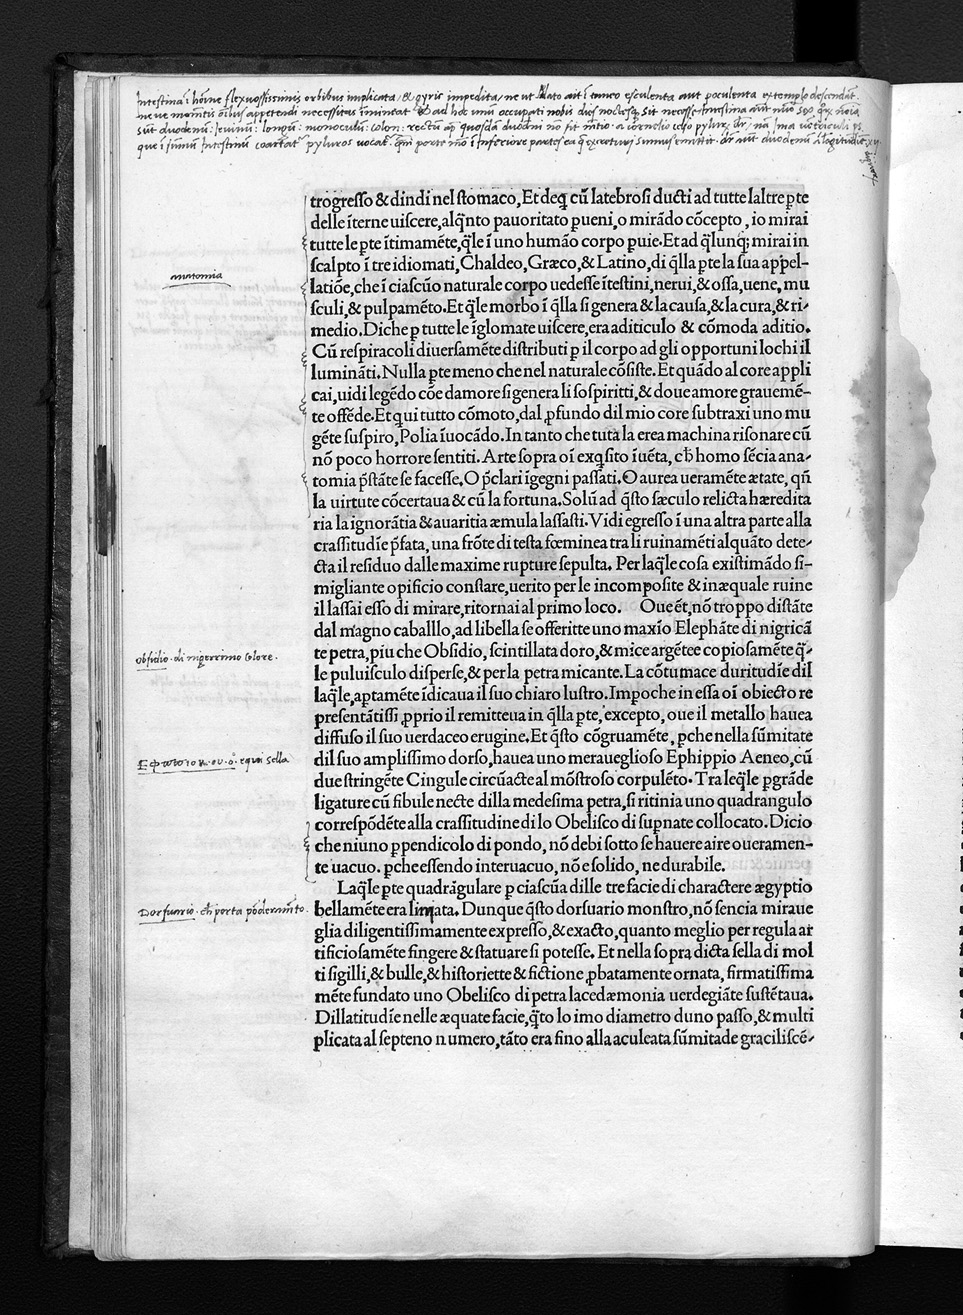 Intestina ī hoīne flexuosissimis orbibus implicata, & gyris impedita, ne ut
esculenta aut poculenta extemplo descendāt.
necessitas īmineat
ad hoc unū occupati nobis dies noctesq sit necesse. Intestina
sūt duodenū: Ieiunū: longū: monoculū: colon: rectū
que ī summū Intestinū coartat pyluros uocat.
anatomia
trogresso & dindi nel stomaco, Et deq̄ cū latebrosi ducti ad tutte laltre ꝑte
delle īterne uiscere, alq̄nto pauoritato ꝑueni, o mirādo cōcepto, io mirai
tutte le ꝑte ītimamēte, q̄le ī uno humāo corpo puie. Et ad q̄lunq; mirai in
scalpto ī tre idiomati, Chaldeo, Græco, & Latino, di q̄lla ꝑte la sua appel-
latiōe, che ī ciascūo naturale corpo uedesse ītestini, nerui, & ossa, uene, mu
sculi, & pulpamēto. Et q̄le morbo ī q̄lla si genera & la causa, & la cura, & ri-
medio. Diche ꝑ tutte le īglomate uiscere, era aditiculo & cōmoda aditio.
Cū respiracoli diuersamēte distributi ꝑ il corpo ad gli opportuni lochi il
lumināti. Nulla ꝑte meno che nel naturale cōsiste. Et quādo al core appli
cai, uidi legēdo cōe damore si genera li sospiritti, & doue amore grauemē-
te offēde. Et qui tutto cōmoto, dal ꝓfundo dil mio core subtraxi uno mu
gēte suspiro, Polia īuocādo. In tanto che tuta la erea machina risonare cū
nō poco horrore sentiti. Arte sopra oī exq̄sito īuēta, ch̄ homo sēcia ana-
tomia p̄stāte se facesse. O p̄clari igegni passati. O aurea ueramēte ætate, qn̄
la uirtute cōcertaua & cū la fortuna. Solū ad q̄sto sæculo relicta hæredita
ria la ignorātia & auaritia æmula lassasti. Vidi egresso ī una altra parte alla
crassitudīe p̄fata, una frōte di testa fœminea tra li ruinamēti alquāto dete-
cta il residuo dalle maxime rupture sepulta. Per laq̄le cosa existimādo si-
migliante opificio constare, uerito per le incomposite & inæquale ruine
il lassai esso di mirare, ritornai al primo loco. Oue ēt, nō troppo distāte
dal magno caballlo, ad libella se offeritte uno maxīo Elephāte di nigricā
te petra, piu che Obsidio, scintillata doro, & mice argētee copiosamēte q̄-
le puluisculo disperse, & per la petra micante. La cōtumace duritudīe dil
laq̄le, aptamēte īdicaua il suo chiaro lustro. Impoche in essa oī obiecto re
presentātissī ꝓprio il remitteua in q̄lla ꝑte, excepto, oue il metallo hauea
diffuso il suo uerdaceo erugine. Et q̄sto cōgruamēte, ꝑche nella sūmitate
dil suo amplissimo dorso, hauea uno meraueglioso Ephippio Aeneo, cū
due stringēte Cingule circūacte al mōstroso corpulēto. Tra leq̄le ꝑgrāde
ligature cū fibule necte dilla medesima petra, si ritinia uno quadrangulo
correspōdēte alla crassitudine di lo Obelisco di suꝑnate collocato. Dicio
che niuno ꝑpendicolo di pondo, nō debi sotto se hauere aire oueramen-
te uacuo. ꝑche essendo interuacuo, nō e solido, ne durabile.
Laq̄le ꝑte quadrāgulare ꝑ ciascūa dille tre facie di charactere ægyptio
bellamēte era liniata. Dunque q̄sto dorsuario monstro, nō sencia miraue
glia diligentissimamente expresso, & exacto, quanto meglio per regula ar
tificiosamēte fingere & statuare si potesse. Et nella sopra dicta sella di mol
ti sigilli, & bulle, & historiette & fictione ꝓbatamente ornata, firmatissima
mēte fundato uno Obelisco di petra lacedæmonia uerdegiāte sustētaua.
Dillatitudīe nelle æquate facie, q̄to lo imo diametro duno passo, & multi
plicata al septeno numero, tāto era fino alla aculeata sūmitade graciliscē-
obsidio. di nigerrimo colore.
equi sella
Dorsuario. ch̄ porta